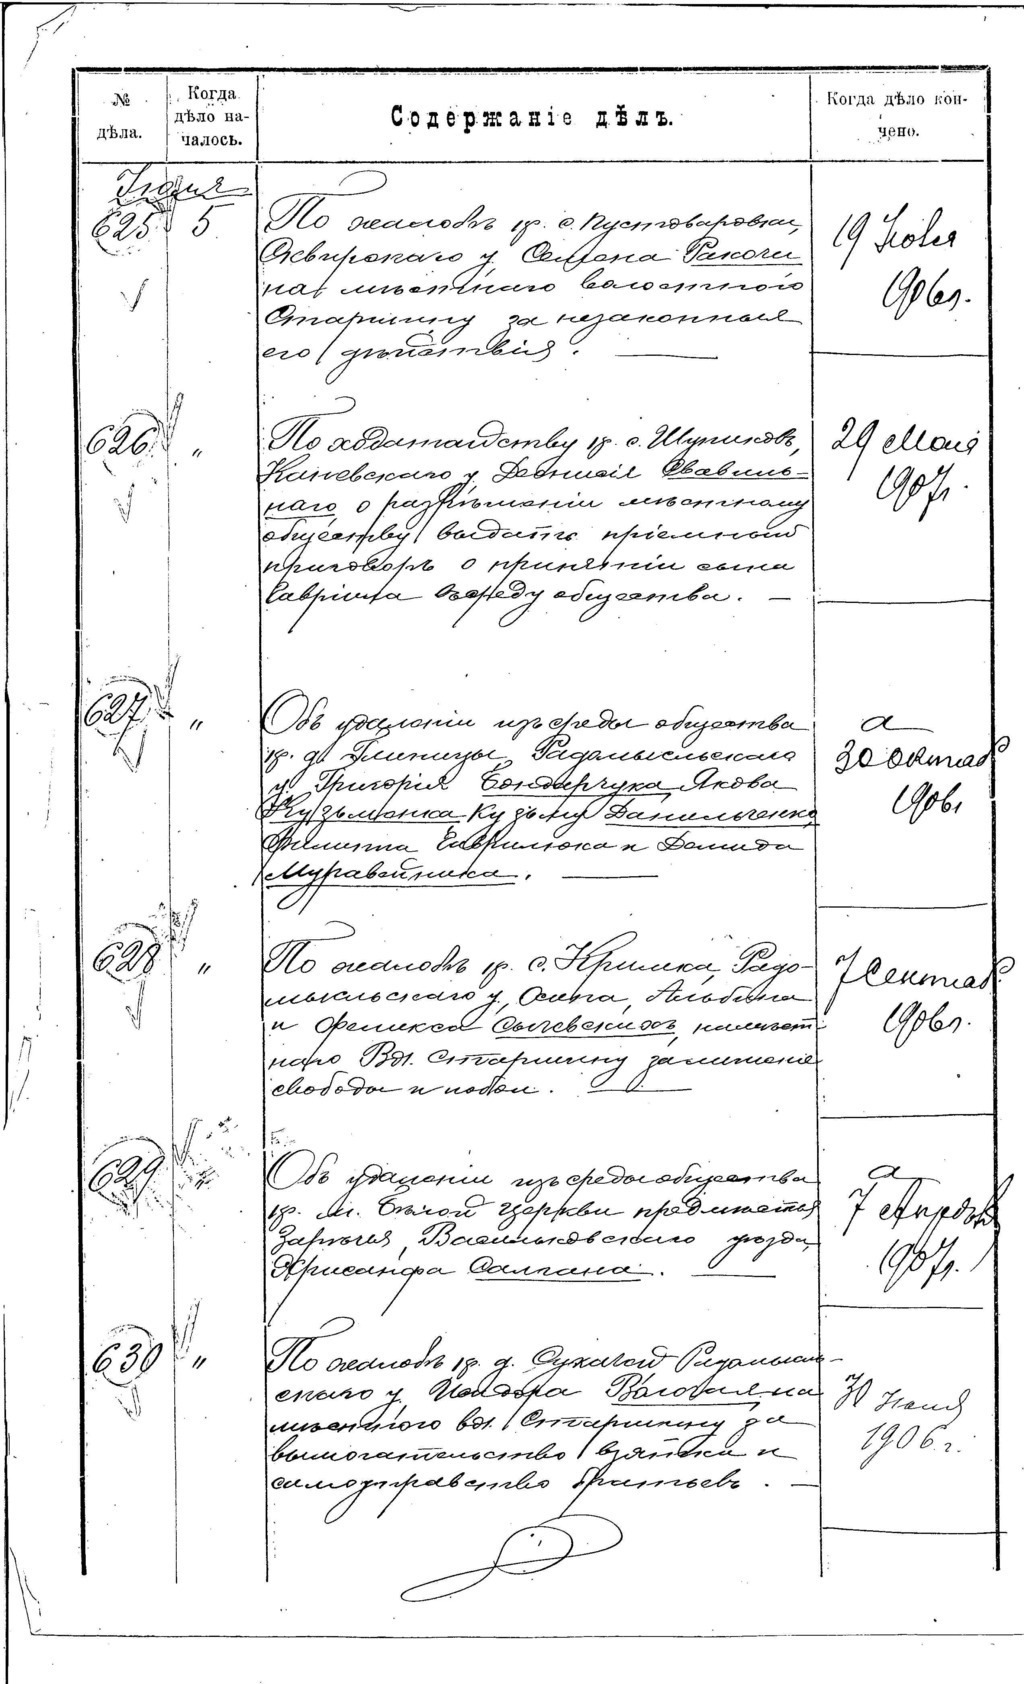 № дѣла.
Когда дѣло на-
чалось.
Содержаніе дѣлъ.
Когда дѣло кон-
чено.
625 5
По жалобѣ кр. с. Пустоваровки,
Сквирскаго у. Семена Ракочи
на мѣстнаго волостного
Старшину за незаконныя
его дѣйствія.
19 Іюля
1906 г.
626 "
По ходатайству кр. с. Шупиковъ,
Каневскаго у. Леонтія Свавиль-
наго о разрѣшеніи мѣстному
обществу выдать пріемный
приговоръ о принятіи сына
Гавріила въ среду общества.
29 Мая
1907 г.
627 "
Объ удаленіи изъ среды общества
кр. д. Глиницы, Радомысльскаго
у. Григорія Бондарчука, Якова
Кузьменка Кузьму Данильченко
Филиппа Гаврилюка и Демида
Муравейника.
а
30 Октяб
1906 г
628 "
По жалобѣ кр. с. Крымка, Радо-
мысльскаго у. Осипа, Альбина
и Феликса Сычевскихъ, на мѣст-
наго Вол. Старшину за лишеніе
свободы и побои.
7 Сентяб
1906 г.
629 "
Объ удаленіи изъ среды общества
кр. м. Бѣлой Церкви предмѣстья
Зарѣчья, Васильковскаго уѣзда,
Хрисанфа Салгана.
а
7 Апрѣля
1907 г.
630 "
По жалобѣ кр. д. Сухачой Радомысль-
скаго у. Исидора на
мѣстного вол. Старшину за
вымогательство взятки и
самоуправство братьевъ.
30 Іюня
1906 г.